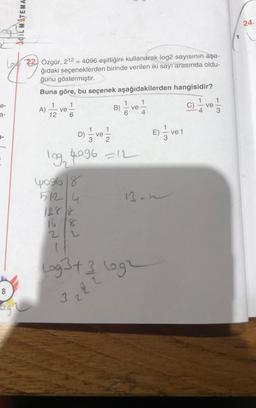 ACİL MATEMA
22. Özgür, 2^12 = 4096 eşitliğini kullanarak log2 sayısının aşa-
ğıdaki seçeneklerden birinde verilen iki sayı arasında oldu-
ğunu göstermiştir.
Buna göre, bu seçenek aşağıdakilerden hangisidir?
A) 1/12 ve 1/6 B) 1/6 ve 1/4 C) 1/4 ve 1/3
D) 1/3 ve 1/2 E) 1/3 ve 1
log2 4096 = 12
4096 | 8
512 | 4
128 | 8
16 | 8
2 | 2
1
log3 + 3/2 log2
8
24.